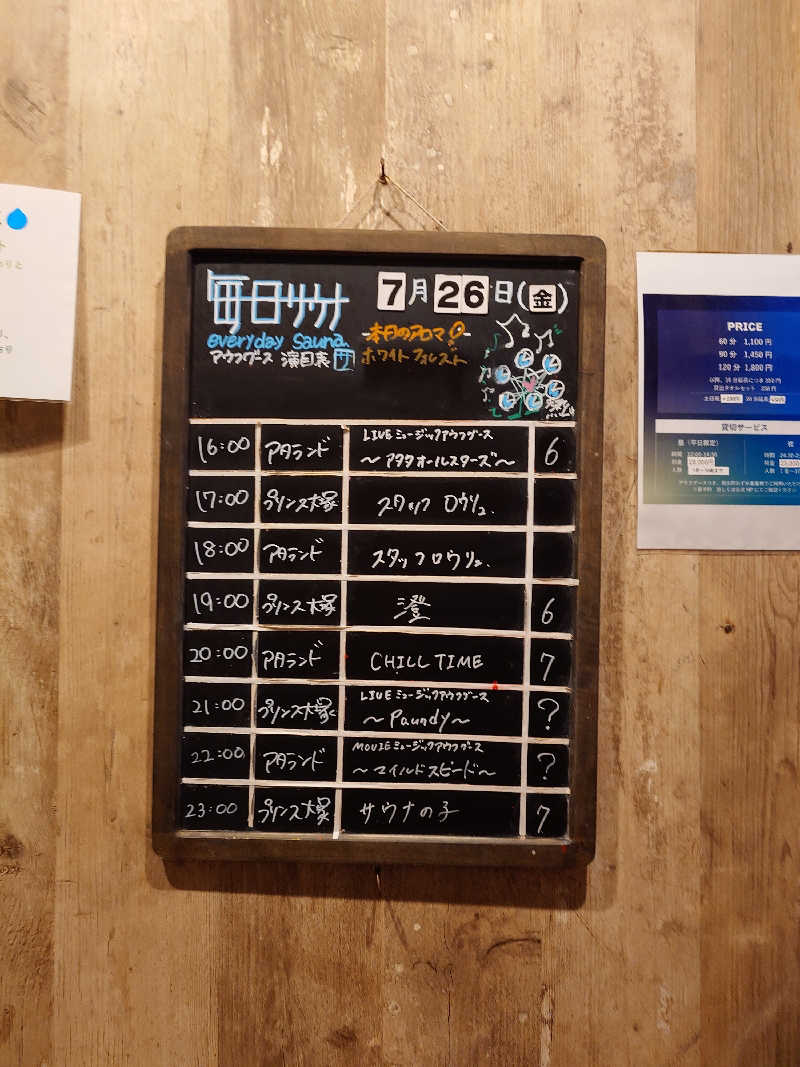 毎日サウナ
7月26日(金)
everyday sauna
本日のアロマ
アウフグース 演目表 サ
ホワイトフォレスト
16:00 アタランド LIVEミュージックアウフグース
〜アタタオールスターズ〜 6
17:00 プリンス大塚 スタッフロウリュ.
18:00 アタランド スタッフロウリュ.
19:00 プリンス大塚 澄 6
20:00 アタランド CHILL TIME 7
21:00 プリンス大塚 LIVEミュージックアウフグース
〜Paundy〜 ?
22:00 アタランド MOVIEミュージックアウフグース
〜マイルドスピード〜 ?
23:00 プリンス大塚 サウナの子 7
PRICE
60分 1,100円
90分 1,450円
120分 1,800円
貸切サービス
昼(平日限定)